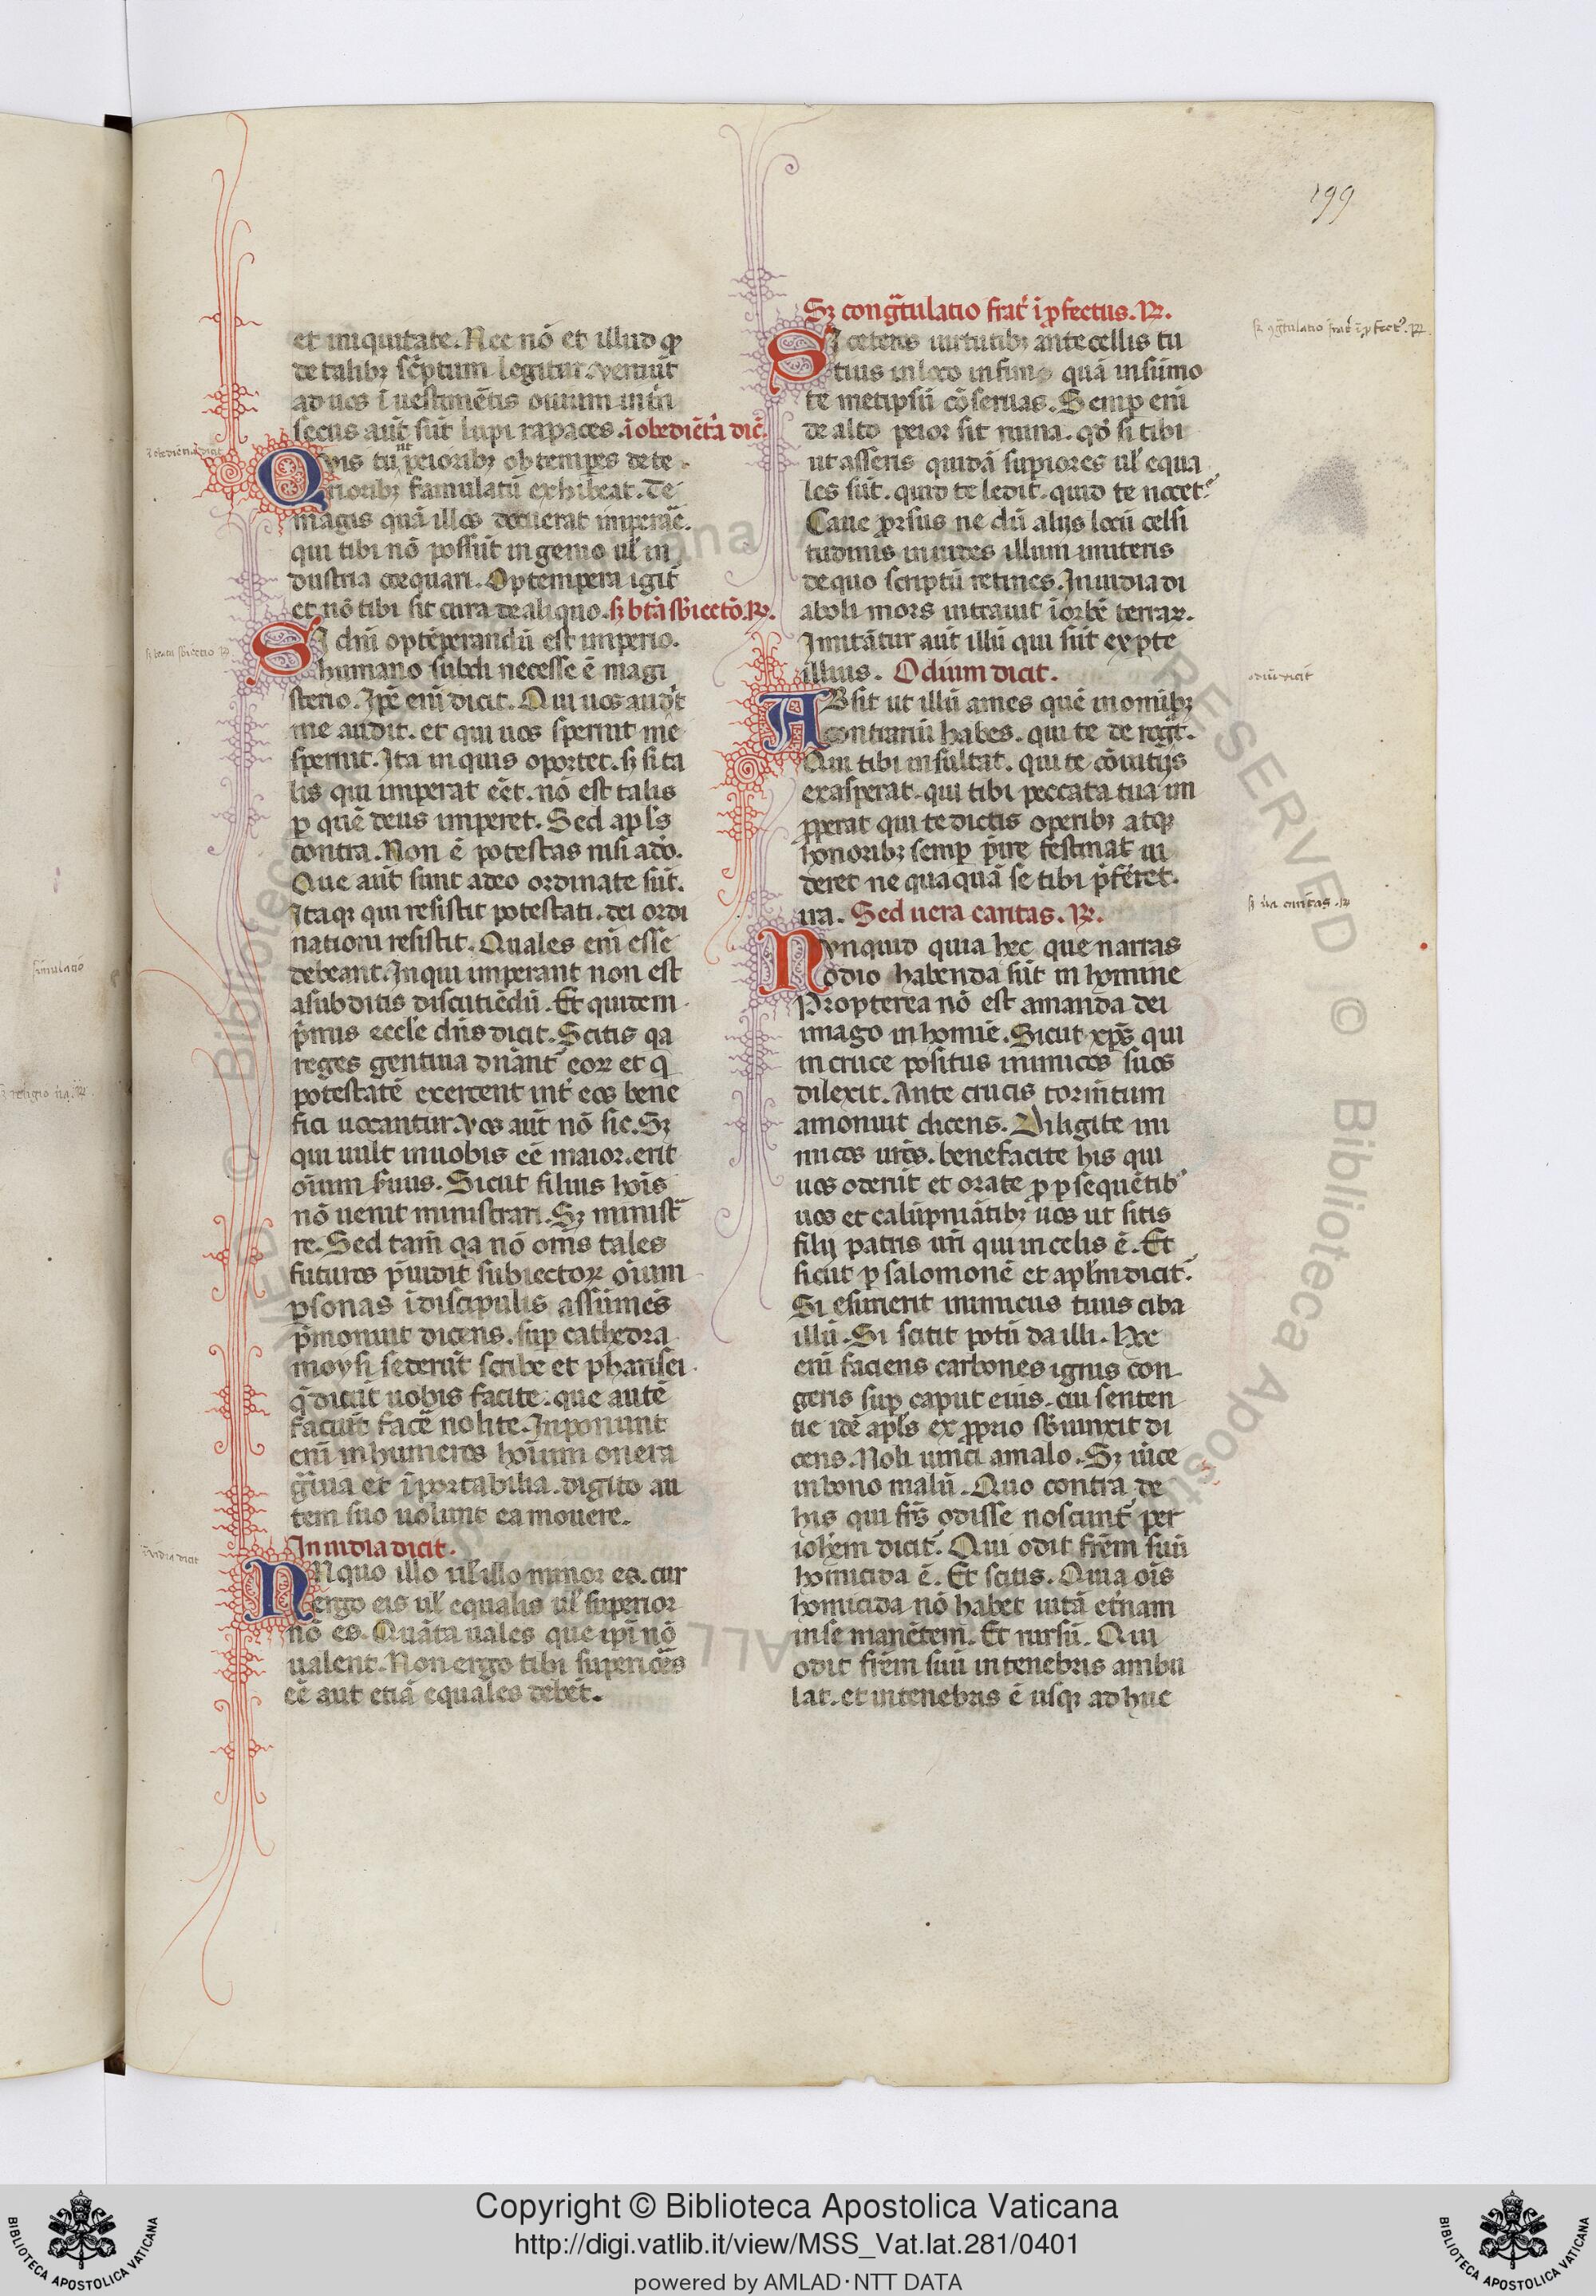 199
et iniquitate. Nec nō et illud qḏ
de talibꝫ scͥptum legitur. veniūt
ad uos ī uestimētis ouium intͥn
secus aūt sūt lupi rapaces. īobediētͥa dic̄.
Quis tu ut peioribꝫ obtempes dete
rioribꝫ famulatū exhibeat. Te
magis quā illos decuerat imperāe.
qui tibi nō possūt ingenio ul̄ in
dustria coequari. Optempera igit̄
et nō tibi sit cura de aliquo. sꝫ btā sb̄iectō. ꝶ.
Si dn̄i optēperandū est imperio.
humano subdi necesse ē magi
sterio. Ip̄e eni dicit. Qui uos audit
me audit. et qui uos spernit me
spernit. Ita inquis oportet. sꝫ si ta
lis qui imperat eēt. nō est talis
ꝑ quē deus imperet. Sed apl̄s
contra. Non ē potestas nisi a dō.
Que aūt sunt a deo ordinate sūt.
Itaqꝫ qui resistit potestati. dei ordi
nationi resistit. Quales eni esse
debeant. In qui imperant non est
a subditis discutiēdū. Et quidem
pͥmus eccl̄e dn̄s dicit. Scitis qa
reges gentiua dn̄ant̄ eoꝝ et q
potestatē exercent int̄ eos bene
fici uocantur. vos aūt nō sic. Sꝫ
qui uult in uobis eē maior. erit
oīum s̄uus. Sicut filius hoīs
nō uenit ministrari. Sꝫ minist̄
re. Sed tam̄ qa nō om̄s tales
futuros p̄uidit subiectoꝝ oīum
ꝑsonas ī discipulis assūmēs
p̄monuit dicens. sup cathedra
moysi sederūt scribe et pharisei
q̄ dicūt uobis facite. que autē
faciūt facē nolite. Inponunt
eni in humeros hoīum onera
gͣuia et īportabilia. digito au
tem suo nolunt ea mouere.
Inuidia dicit.
INquo illo ul̄ illo minor es. cur
ergo eis ul̄ equalis ul̄ superior
nō es. Quāta uales que ip̄i nō
ualent. Non ergo tibi superiores
eē aut etiā equales debēt.
Sꝫ congͣtulatio fratͥ ī ꝓfectus. ꝶ.
SI ceteris uirtutibꝫ antecellis tu
tius in loco infimo quā in sūmo
te metipsū cōseruas. Semp eni
de alto peior fit ruina. qd̄ si tibi
ut asseris quidā supiores ul̄ equa
les sūt. quid te ledit. quid te nocet.
Caue ꝓrsus ne dū alijs locū celsi
tudinis inuides illum imiteris
de quo scriptū retines. Inuidia di
aboli mors intrauit ī orbē terraꝝ.
Imitātur aūt illū qui sūt ex pte
illius. Odium dicit.
ABsit ut illū ames quē in omībꝫ
contrariū habes. qui te derogͣt.
Qui tibi insultat. qui te cōuitijs
exasperat. qui tibi peccata tua im
ꝓperat qui te dictis operibꝫ atqꝫ
honoribꝫ semp p̄ire festinat in
deret nequaquā se tibi p̄ferret.
ua. Sed uera caritas. ꝶ.
Nonquid quia hec que narras
odio habenda sūt in homine
Propterea nō est amanda dei
imago in homine. Sicut xp̄s qui
in cruce positus inimicos suos
dilexit. Ante crucis torm̄tum
amonuit dicens. Diligite ini
micos ur̄os. benefacite his qui
uos oderūt et orate ꝓ psequētibꝫ
uos et calūpniātibꝫ uos ut sitis
filij patris ur̄i qui in celis ē. Et
sicut ꝑ salomonē et apl̄m dicit.
Si esurierit inimicus tuus ciba
illū. Si scitit potū da illi. Hec
eni faciens carbones ignis con
geris sup caput eius. cui senten
tie idē apl̄s ex ꝓprio sb̄iunxit di
cens. Noli uinci a malo. Sꝫ uīce
in bono malū. Quo contra de
his qui fr̄s odisse noscunt̄ per
ioh̄em dicit. Qui odit fr̄em suū
homicida ē. Et scitis. Quia oīs
homicida nō habet uitā et̄nam
in se manētem. Et rursū. Qui
odit fr̄em suū in tenebris ambu
lat. et in tenebris ē usqꝫ ad huc
īobediētia dicit
sꝫ beata sb̄iectio ꝶ
inuidia dicit
sꝫ ꝯgͣtulatio fratͥ ī ꝓfectꝰ. ꝶ.
odiū dicit
sꝫ ūa caritas. ꝶ
simulatio
sꝫ religio ūa. ꝶ.
Copyright © Biblioteca Apostolica Vaticana
http://digi.vatlib.it/view/MSS_Vat.lat.281/0401
powered by AMLAD·NTT DATA
BIBLIOTECA APOSTOLICA VATICANA
BIBLIOTECA APOSTOLICA VATICANA